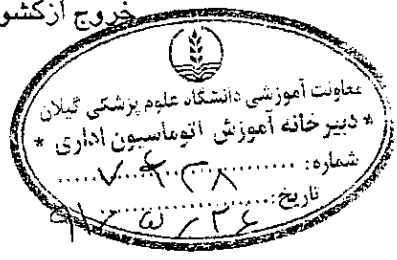 خروج ازکشو
معاونت آموزشی دانشگاه علوم پزشکی گیلان
* دبیرخانه آموزش اتوماسیون اداری *
شماره:
تاریخ: ۹۱/۵/۲۴